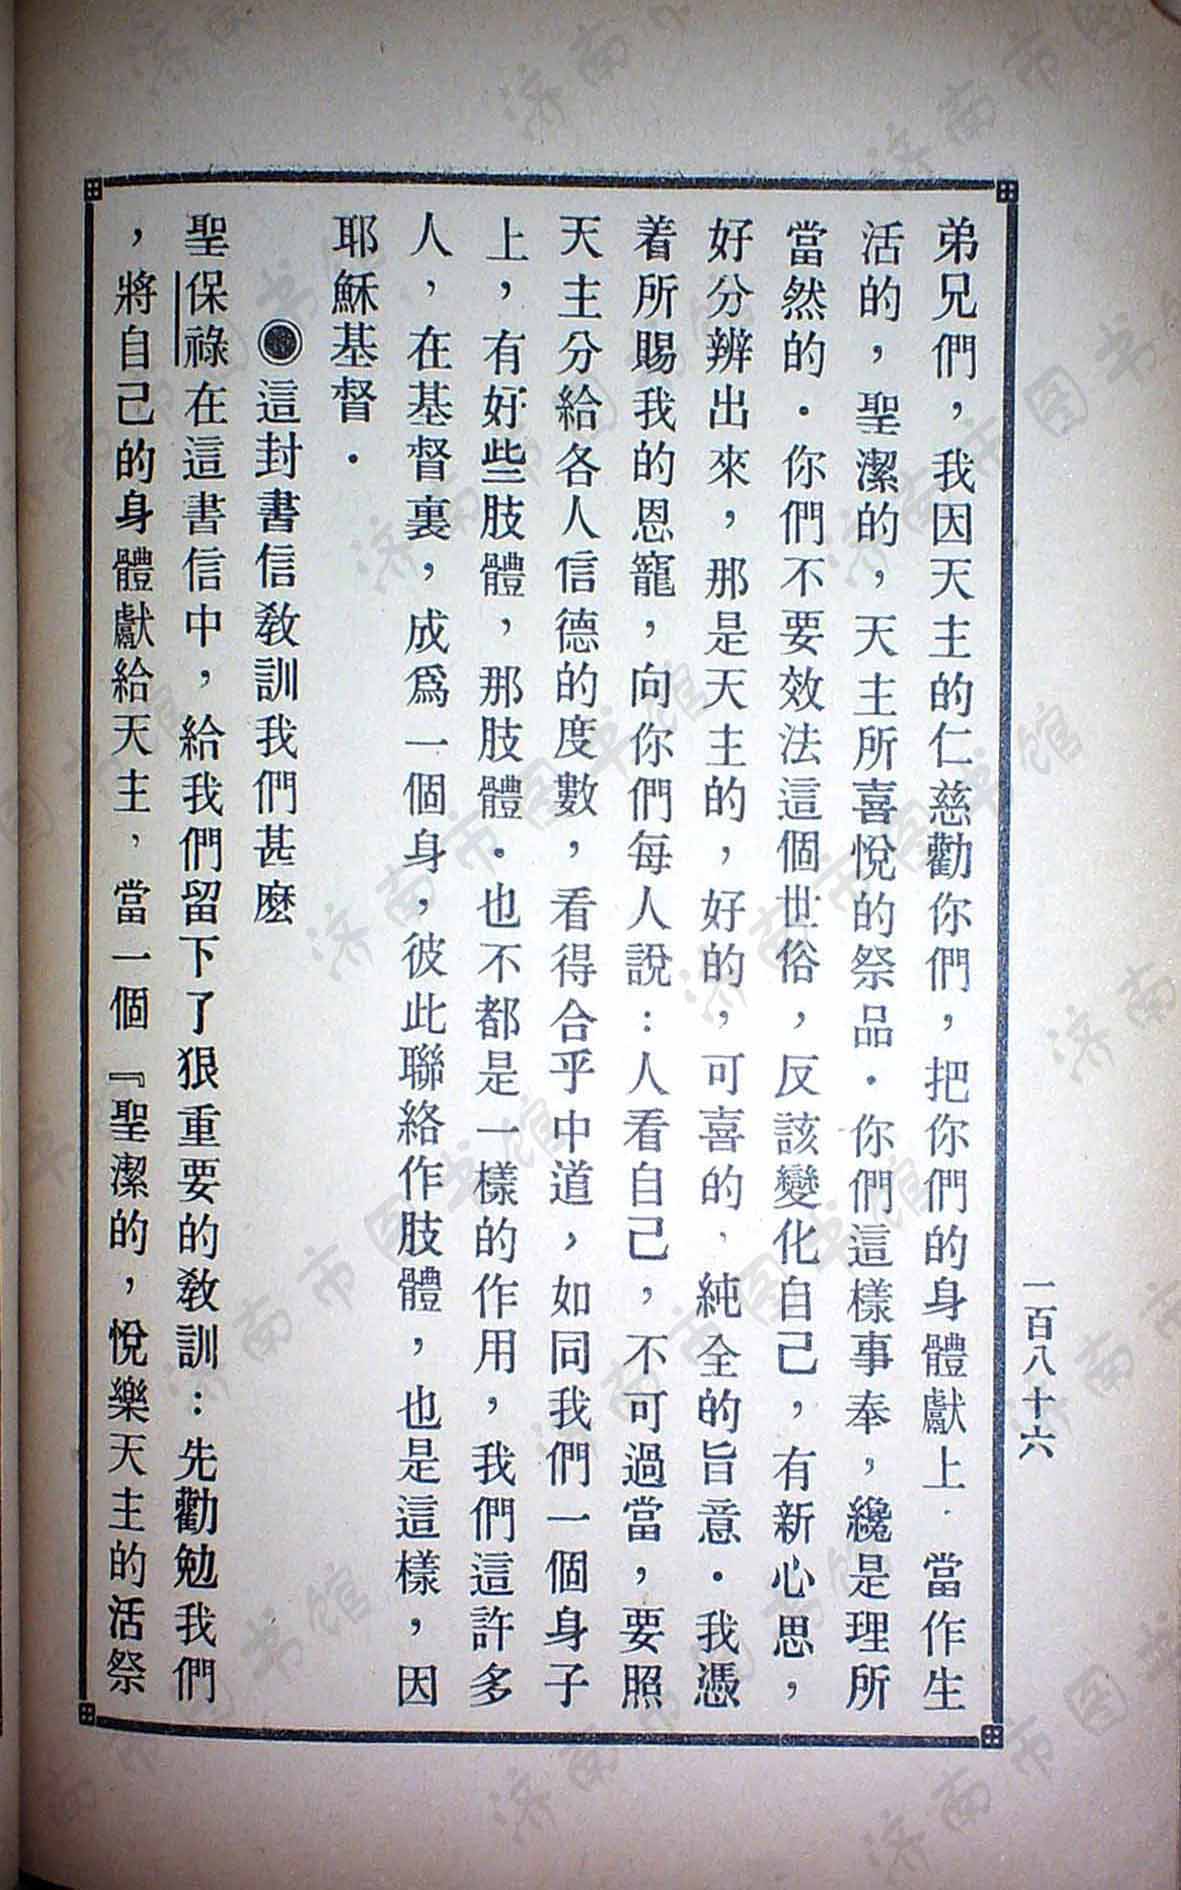 弟兄們，我因天主的仁慈勸你們，把你們的身體獻上．當作生
活的，聖潔的，天主所喜悅的祭品．你們這樣事奉，纔是理所
當然的．你們不要效法這個世俗，反該變化自己，有新心思，
好分辨出來，那是天主的，好的，可喜的，純全的旨意．我憑
着所賜我的恩寵，向你們每人說：人看自己，不可過當，要照
天主分給各人信德的度數，看得合乎中道，如同我們一個身子
上，有好些肢體，那肢體．也不都是一樣的作用，我們這許多
人，在基督裏，成爲一個身，彼此聯絡作肢體，也是這樣，因
耶穌基督．
◉這封書信教訓我們甚麽
聖保祿在這書信中，給我們留下了狠重要的教訓：先勸勉我們
，將自己的身體獻給天主，當一個『聖潔的，悅樂天主的活祭
一百八十六
济南市图书馆